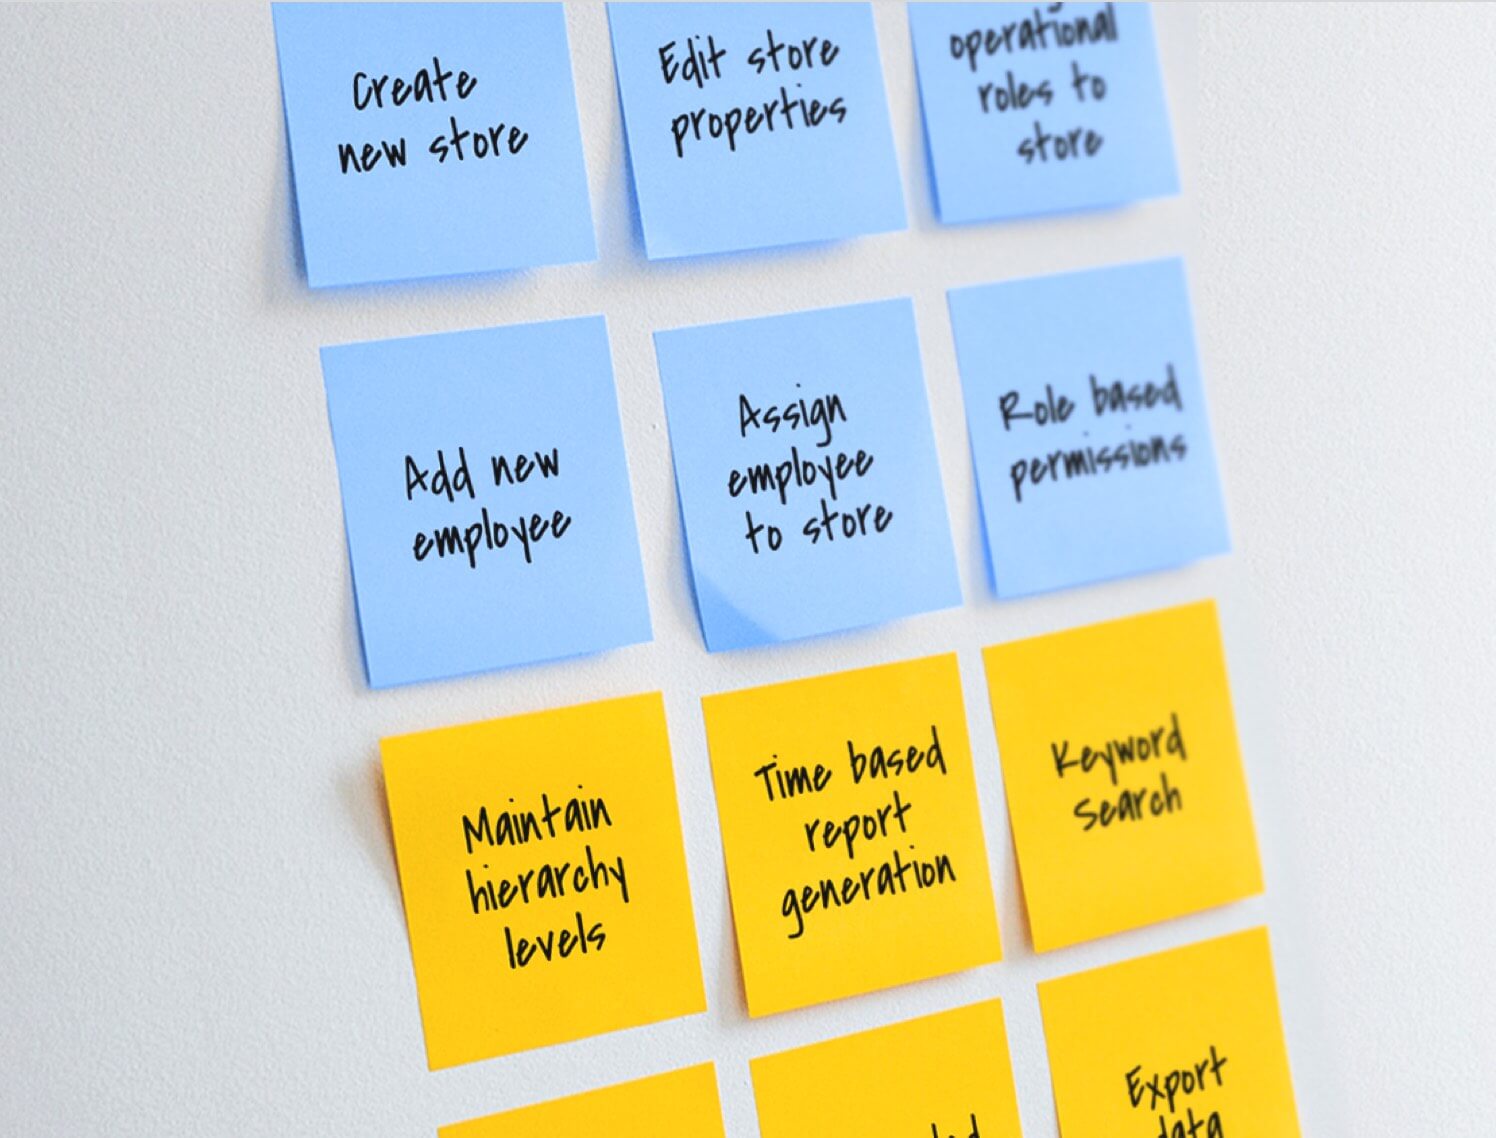 Create
new store
Edit store
properties
operational
roles to
store
Add new
employee
Assign
employee
to store
Role based
permissions
Maintain
hierarchy
levels
Time based
report
generation
Keyword
Search
Export
data